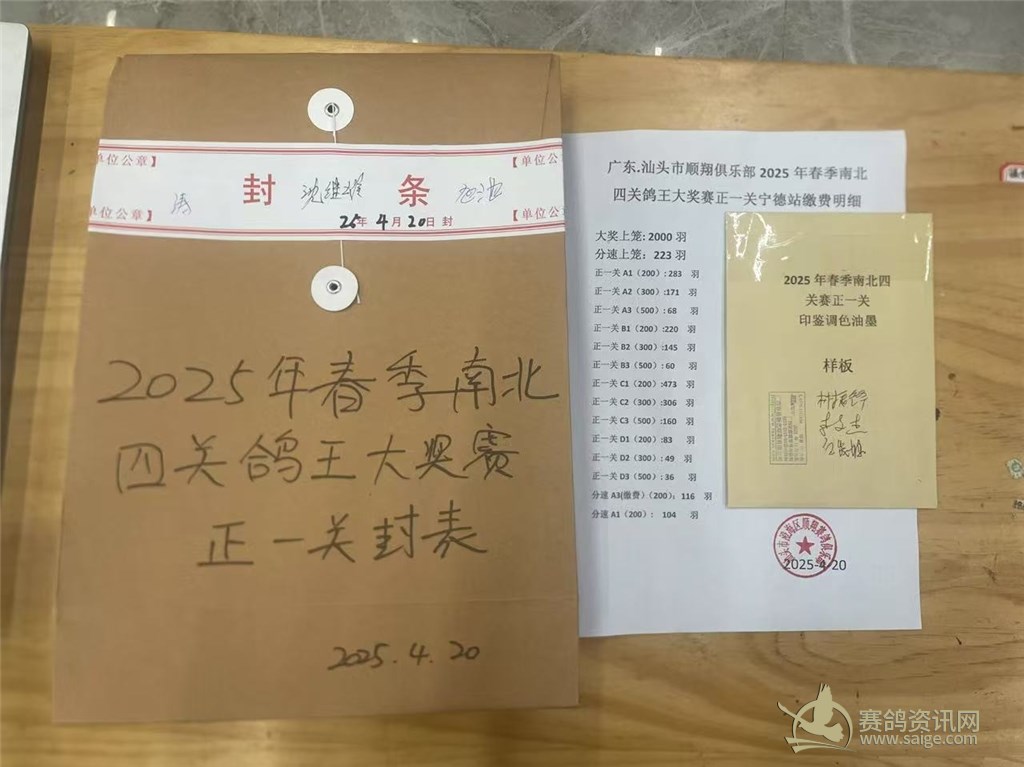 单位公章】
【单位公
封 条
25年 4月 20日 封
单位公章】
【单位公
2025年春季南北
四关鸽王大奖赛
正一关封表
2025.4.20
广东.汕头市顺翔俱乐部 2025 年春季南北
四关鸽王大奖赛正一关宁德站缴费明细
大奖上笼: 2000 羽
分速上笼: 223 羽
正一关 A1（200）:283 羽
正一关 A2（300）:171 羽
正一关 A3（500）: 68 羽
正一关 B1（200）:220 羽
正一关 B2（300）:145 羽
正一关 B3（500）: 60 羽
正一关 C1（200）:473 羽
正一关 C2（300）:306 羽
正一关 C3（500）:160 羽
正一关 D1（200）:83 羽
正一关 D2（300）: 49 羽
正一关 D3（500）: 36 羽
分速 A3(缴费)（200）: 116 羽
分速 A1（200）: 104 羽
2025-4-20
2025 年春季南北四
关赛正一关
印鉴调色油墨
样板
赛鸽资讯网
www.saige.com